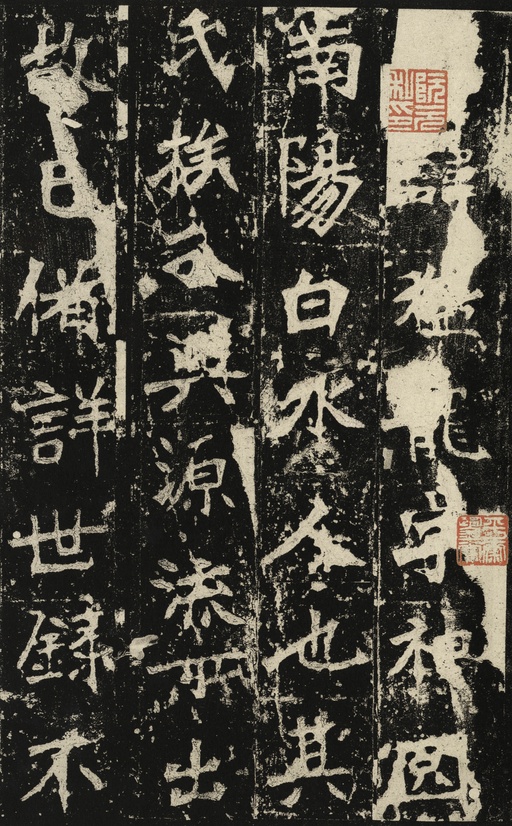 諱猛龍字神冏
南陽白水人也其
氏族分興源流所出
故已備詳世錄不
阮元私印